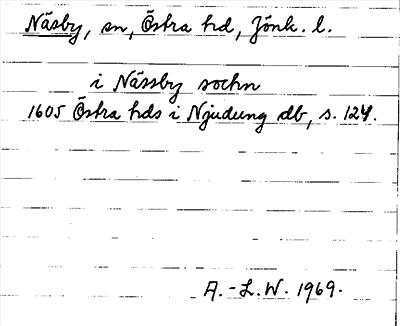 Näsby, sn, Östra hd, Jönk. l.
i Nässby sochn
1605 Östra hds i Njudung db, s. 124.
A.-L.W. 1969.